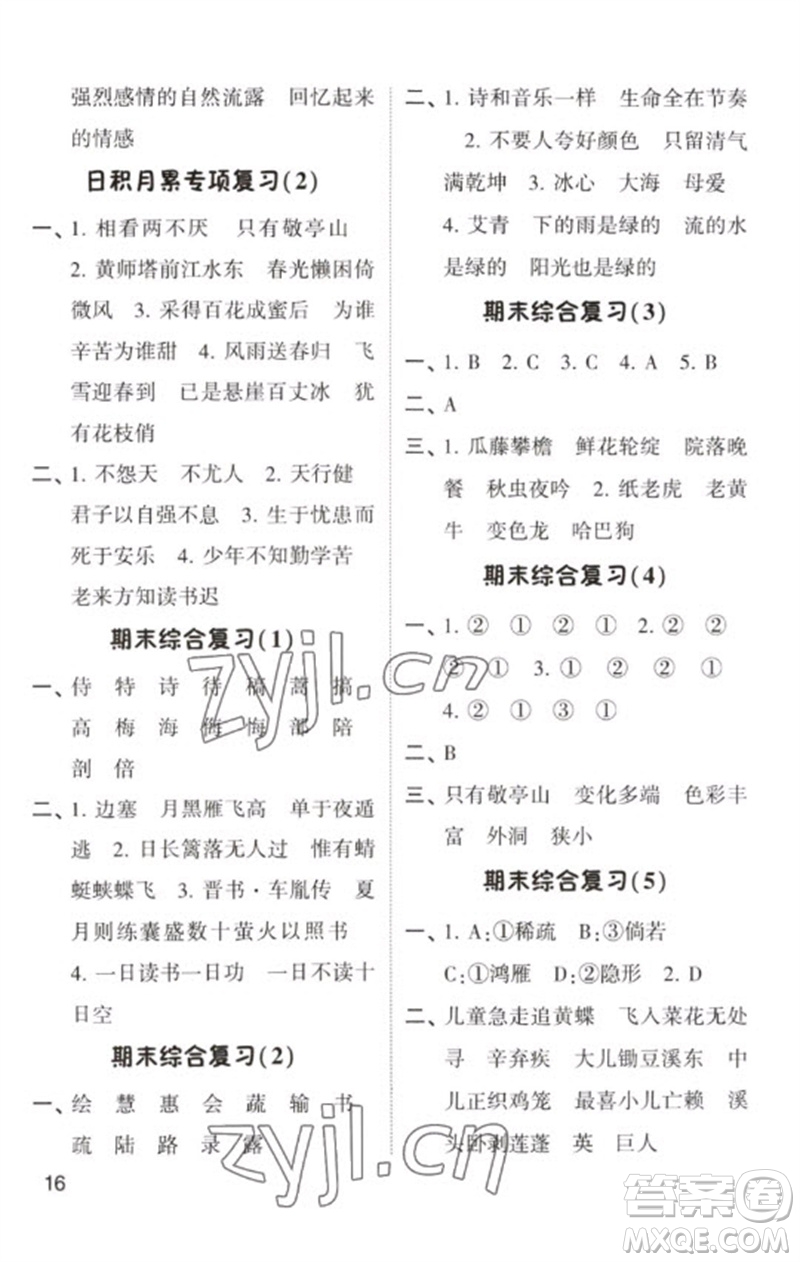 强烈感情的自然流露 回忆起来
的情感
日积月累专项复习(2)
一、1. 相看两不厌 只有敬亭山
2. 黄师塔前江水东 春光懒困倚
微风 3. 采得百花成蜜后 为谁
辛苦为谁甜 4. 风雨送春归 飞
雪迎春到 已是悬崖百丈冰 犹
有花枝俏
二、1. 不怨天 不尤人 2. 天行健
君子以自强不息 3. 生于忧患而
死于安乐 4. 少年不知勤学苦
老来方知读书迟
期末综合复习(1)
一、侍 特 诗 待 槁 蒿 搞
高 梅 海 侮 悔 部 陪
剖 倍
二、1. 边塞 月黑雁飞高 单于夜遁
逃 2. 日长篱落无人过 惟有蜻
蜓蛱蝶飞 3. 晋书·车胤传 夏
月则练囊盛数十萤火以照书
4. 一日读书一日功 一日不读十
日空
期末综合复习(2)
一、绘 慧 惠 会 蔬 输 书
疏 陆 路 录 露
16
二、1. 诗和音乐一样 生命全在节奏
2. 不要人夸好颜色 只留清气
满乾坤 3. 冰心 大海 母爱
4. 艾青 下的雨是绿的 流的水
是绿的 阳光也是绿的
期末综合复习(3)
一、1. B 2. C 3. C 4. A 5. B
二、A
三、1. 瓜藤攀檐 鲜花轮绽 院落晚
餐 秋虫夜吟 2. 纸老虎 老黄
牛 变色龙 哈巴狗
期末综合复习(4)
一、1. ② ① ② ① 2. ② ②
② ① 3. ① ② ② ①
4. ② ① ③ ①
二、B
三、只有敬亭山 变化多端 色彩丰
富 外洞 狭小
期末综合复习(5)
一、1. A:①稀疏 B:③倘若
C:①鸿雁 D:②隐形 2. D
二、儿童急走追黄蝶 飞入菜花无处
寻 辛弃疾 大儿锄豆溪东 中
儿正织鸡笼 最喜小儿亡赖 溪
头卧剥莲蓬 英 巨人
zyjl.cn
zyjl.cn
答案圈
MXQE.COM